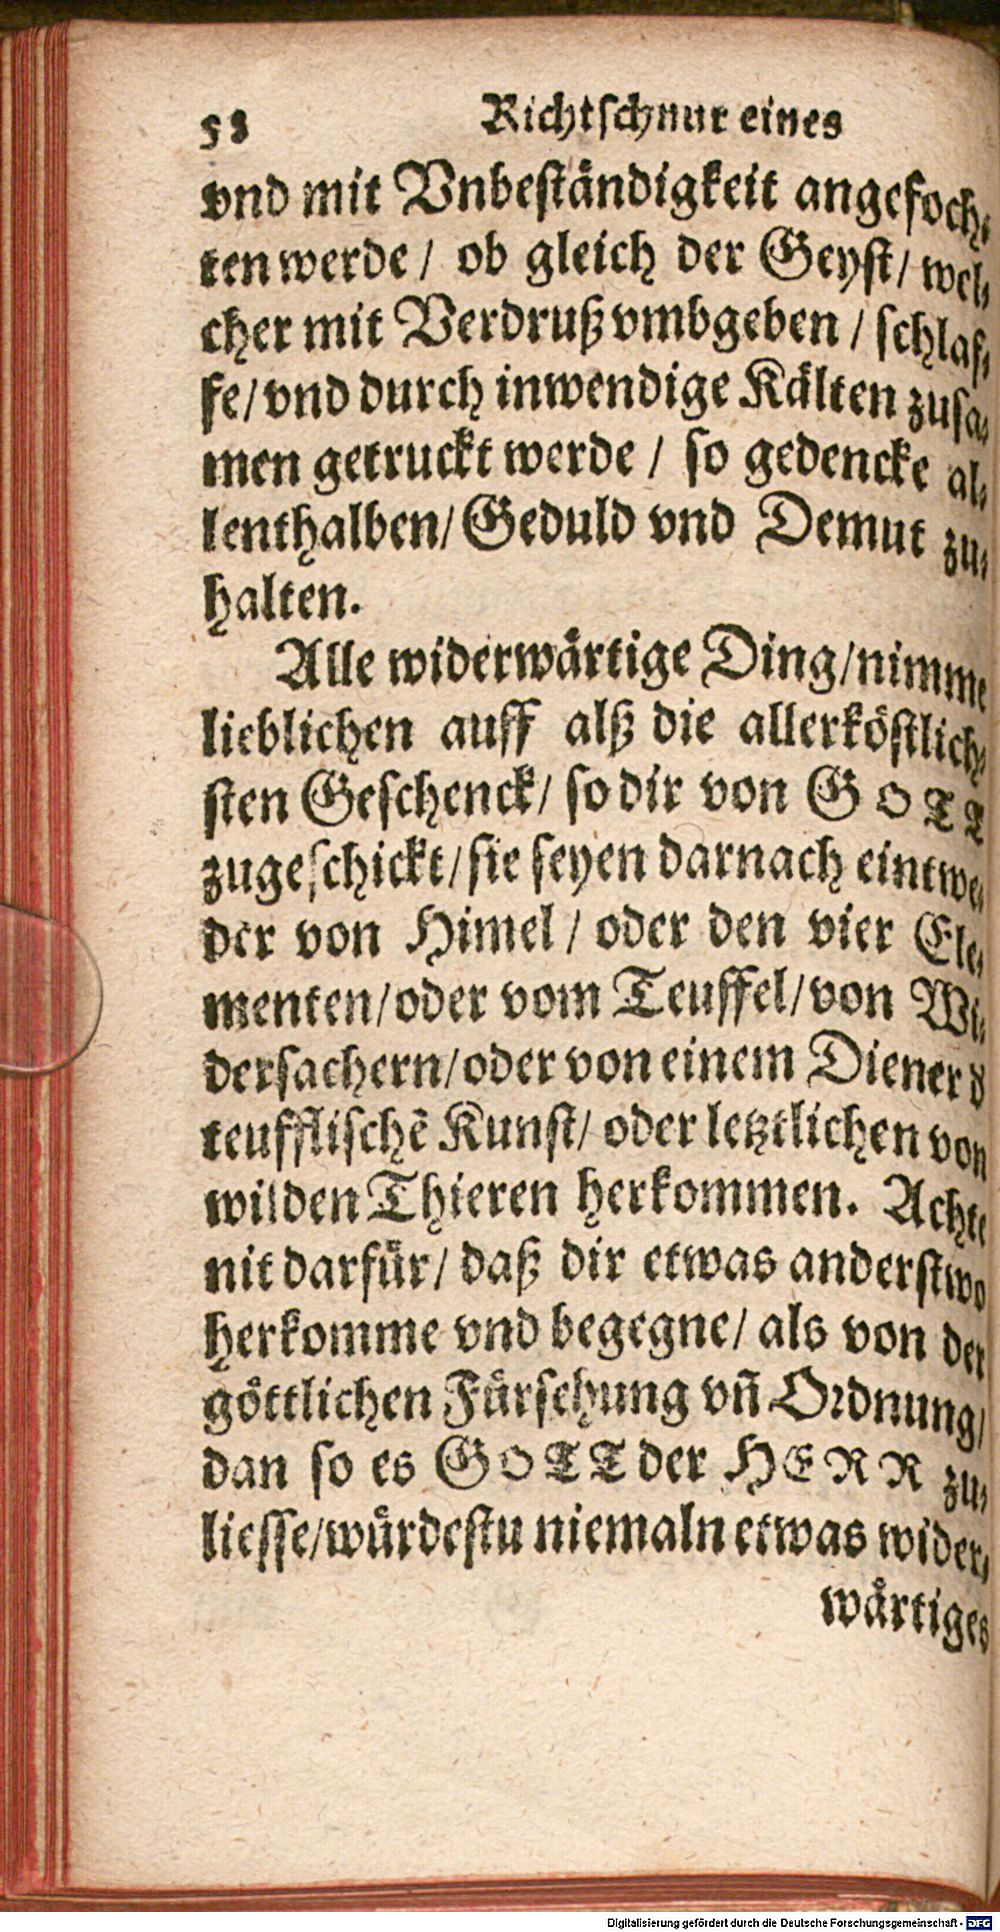 58 Richtschnur eines
vnd mit Vnbeständigkeit angefoch⸗
ten werde / ob gleich der Geyst / wel⸗
cher mit Verdruß vmbgeben / schlaf⸗
fe / vnd durch inwendige Kälten zusa⸗
men getruckt werde / so gedencke al⸗
lenthalben / Geduld vnd Demut zu⸗
halten.
Alle widerwärtige Ding / nimme
lieblichen auff alß die allerköstlich⸗
sten Geschenck / so dir von GOTT
zugeschickt / sie seyen darnach eintwe⸗
der von Himel / oder den vier Ele⸗
menten / oder vom Teuffel / von Wi⸗
dersachern / oder von einem Diener d
teufflischē Kunst / oder letztlichen von
wilden Thieren herkommen. Achte
nit darfür / daß dir etwas anderstwo
herkomme vnd begegne / als von der
göttlichen Fürsehung vñ Ordnung /
dan so es GOTT der HERR zu⸗
liesse / würdestu niemaln etwas wider⸗
wärtiges
Digitalisierung gefördert durch die Deutsche Forschungsgemeinschaft - DFG